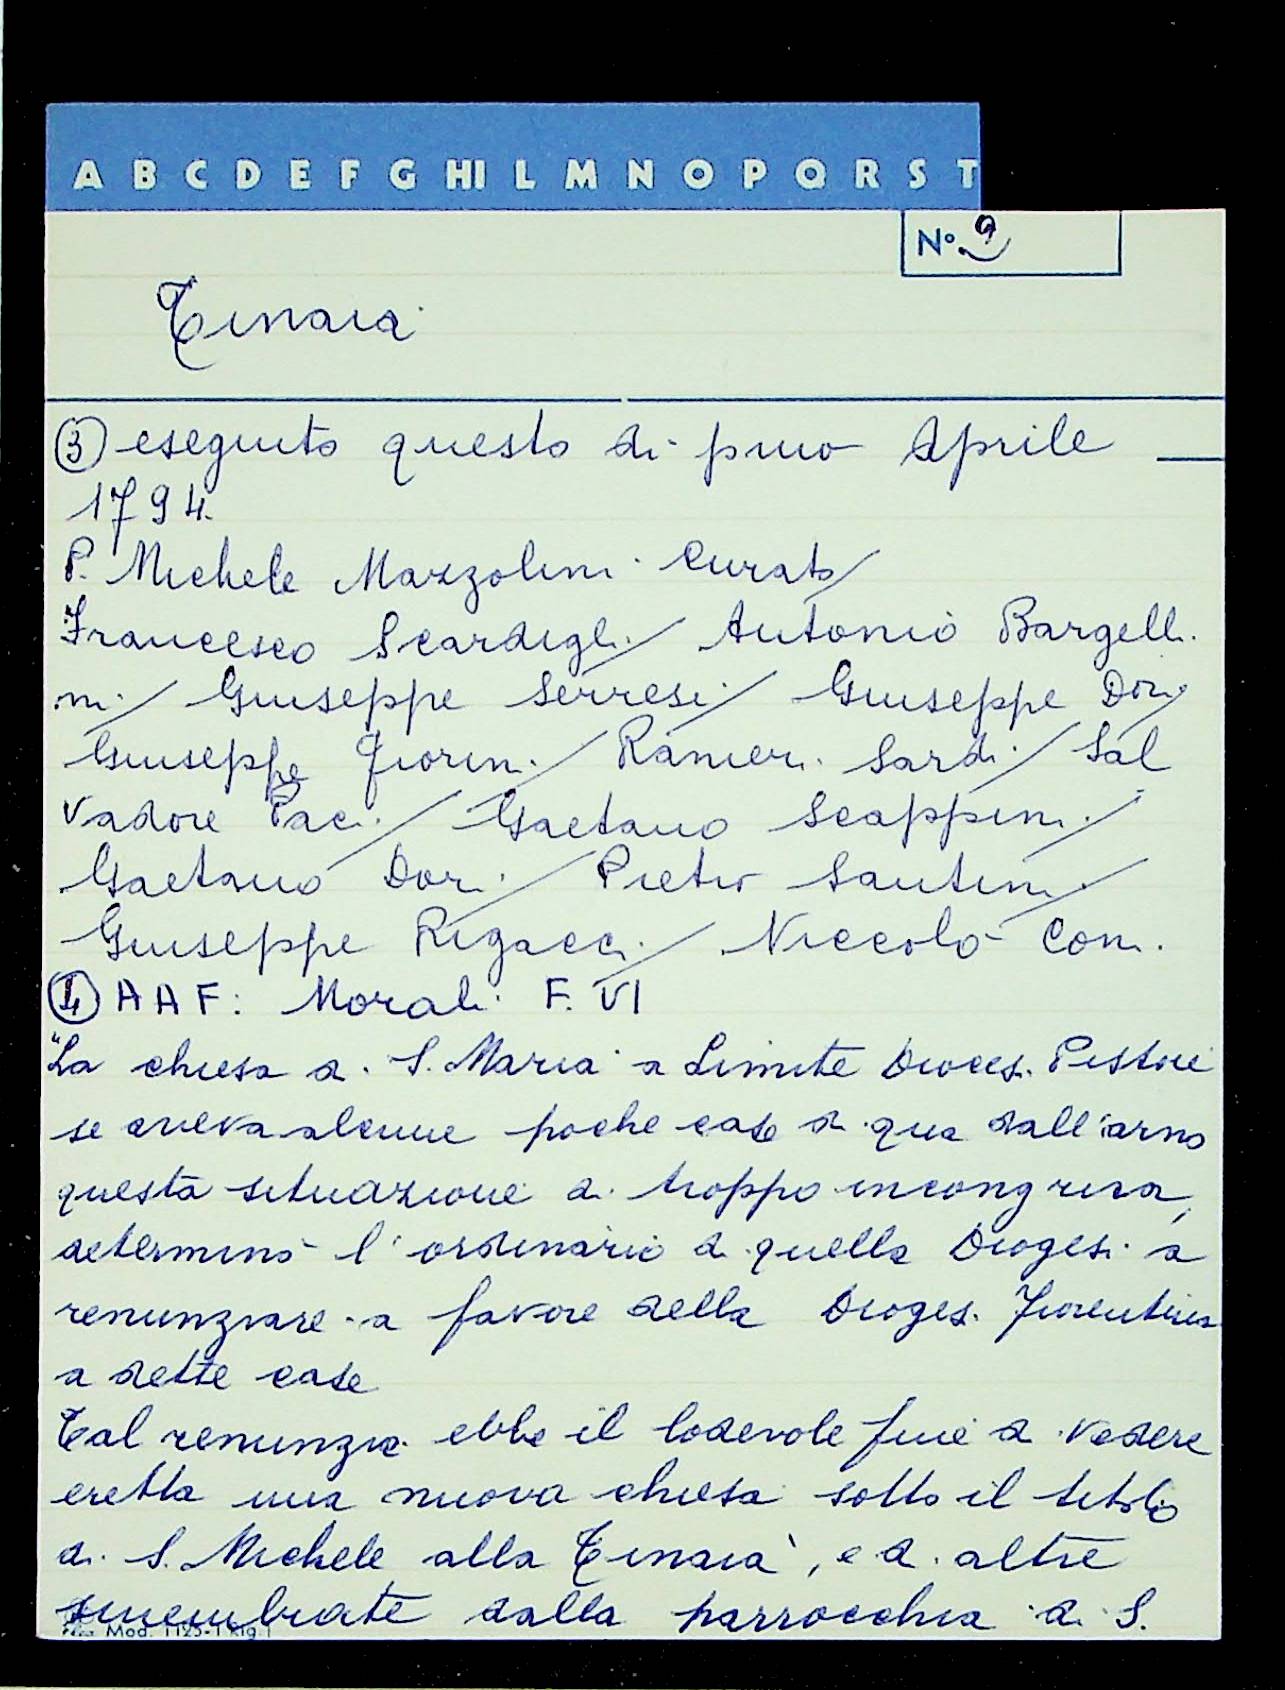 A B C D E F G HI L M N O P Q R S T
N° 9
Tinaia
③ eseguito questo di primo Aprile —
1794.
P. Michele Mazzolini Curato/
Francesco Scardigli/ Antonio Bargelli
ni/ Giuseppe Serresi/ Giuseppe Dori/
Giuseppe Fiorini/ Ranieri Sardi/ Sal
vadore Paci/ Gaetano Scappini/
Gaetano Dori/ Pietro Santini/
Giuseppe Rigacci/ Niccolò Coni.
④ AAF: Morali F. VI
"La chiesa di S. Maria a Limite Dioces. Pistoie
se aveva alcune poche case di qua dall'arno
questa situazione di troppo incongrua,
determinò l'ordinario di quella Diogesi a
renunziare a favore della Dioges. Fiorentina
a dette case
Tal renunzia ebbe il lodevole fine di vedere
eretta una nuova chiesa sotto il titolo
di S. Michele alla Tinaia, e di altre
smembrate dalla parrocchia di S.
Mod. 1125-1 Rig.1